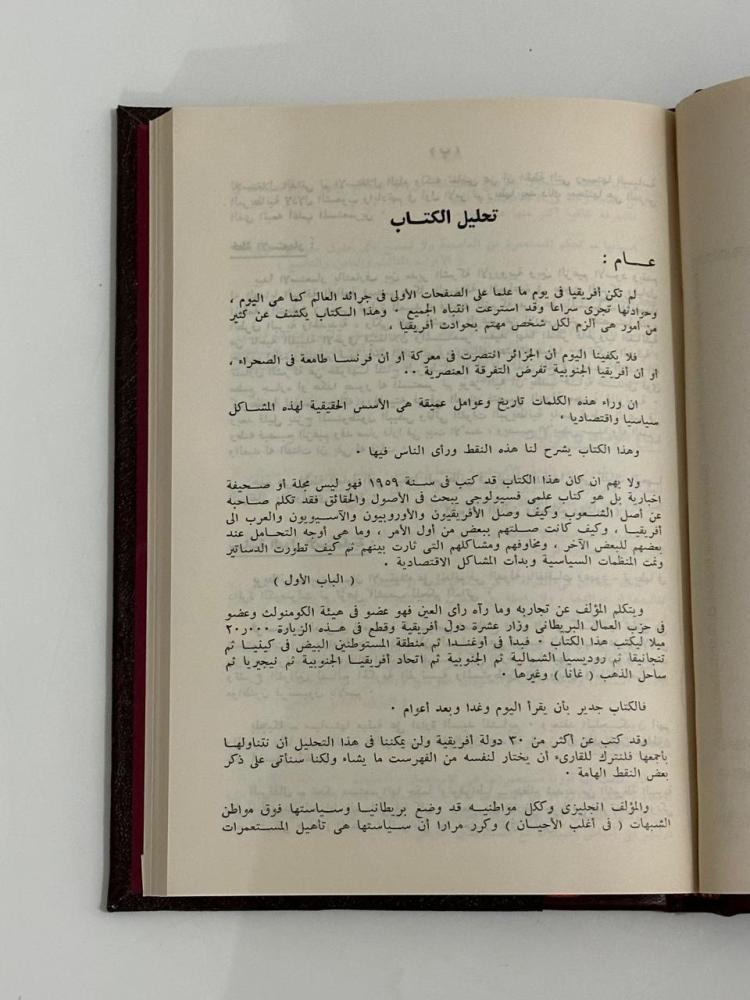 تحليل الكتاب
عــام :
لم تكن أفريقيا فى يوم ما علما على الصفحات الأولى فى جرائد العالم كما هى اليوم ،
وحوادثها تجرى سراعا وقد استرعت انتباه الجميع ٠ وهذا الكتاب يكشف عن كثير
من أمور هى ألزم لكل شخص مهتم بحوادث أفريقيا ٠
فلا يكفينا اليوم أن الجزائر انتصرت فى معركة أو أن فرنسا طامعة فى الصحراء ،
أو أن أفريقيا الجنوبية تفرض التفرقة العنصرية ٠٠
ان وراء هذه الكلمات تاريخ وعوامل عميقة هى الأسس الحقيقية لهذه المشاكل
سياسيا واقتصاديا ٠
وهذا الكتاب يشرح لنا هذه النقط ورأى الناس فيها ٠
ولا يهم ان كان هذا الكتاب قد كتب فى سنة ١٩٥٩ فهو ليس مجلة أو صحيفة
اخبارية بل هو كتاب علمى فسيولوجى يبحث فى الأصول والحقائق فقد تكلم صاحبه
عن أصل الشعوب وكيف وصل الأفريقيون والأوروبيون والآسيويون والعرب الى
أفريقيا ، وكيف كانت صلتهم ببعض من أول الأمر ، وما هى أوجه التحامل عند
بعضهم للبعض الآخر ، ومخاوفهم ومشاكلهم التى ثارت بينهم ثم كيف تطورت الدساتير
ونمت المنظمات السياسية وبدأت المشاكل الاقتصادية ٠
( الباب الأول )
ويتكلم المؤلف عن تجاربه وما رآه رأى العين فهو عضو فى هيئة الكومنولث وعضو
فى حزب العمال البريطانى وزار عشرة دول أفريقية وقطع فى هذه الزيارة ٢٠ر٠٠٠
ميلا ليكتب هذا الكتاب ٠ فبدأ فى أوغندا ثم منطقة المستوطنين البيض فى كينيا ثم
تنجانيقا ثم روديسيا الشمالية ثم الجنوبية ثم اتحاد أفريقيا الجنوبية ثم نيجيريا ثم
ساحل الذهب ( غانا ) وغيرها ٠
فالكتاب جدير بأن يقرأ اليوم وغدا وبعد أعوام ٠
وقد كتب عن أكثر من ٣٠ دولة أفريقية ولن يمكننا فى هذا التحليل أن نتناولها
بأجمعها فلنترك للقارىء أن يختار لنفسه من الفهرست ما يشاء ولكنا سنأتى على ذكر
بعض النقط الهامة ٠
والمؤلف انجليزى وككل مواطنيه قد وضع بريطانيا وسياستها فوق مواطن
الشبهات ( فى أغلب الأحيان ) وكرر مرارا أن سياستها هى تأهيل المستعمرات